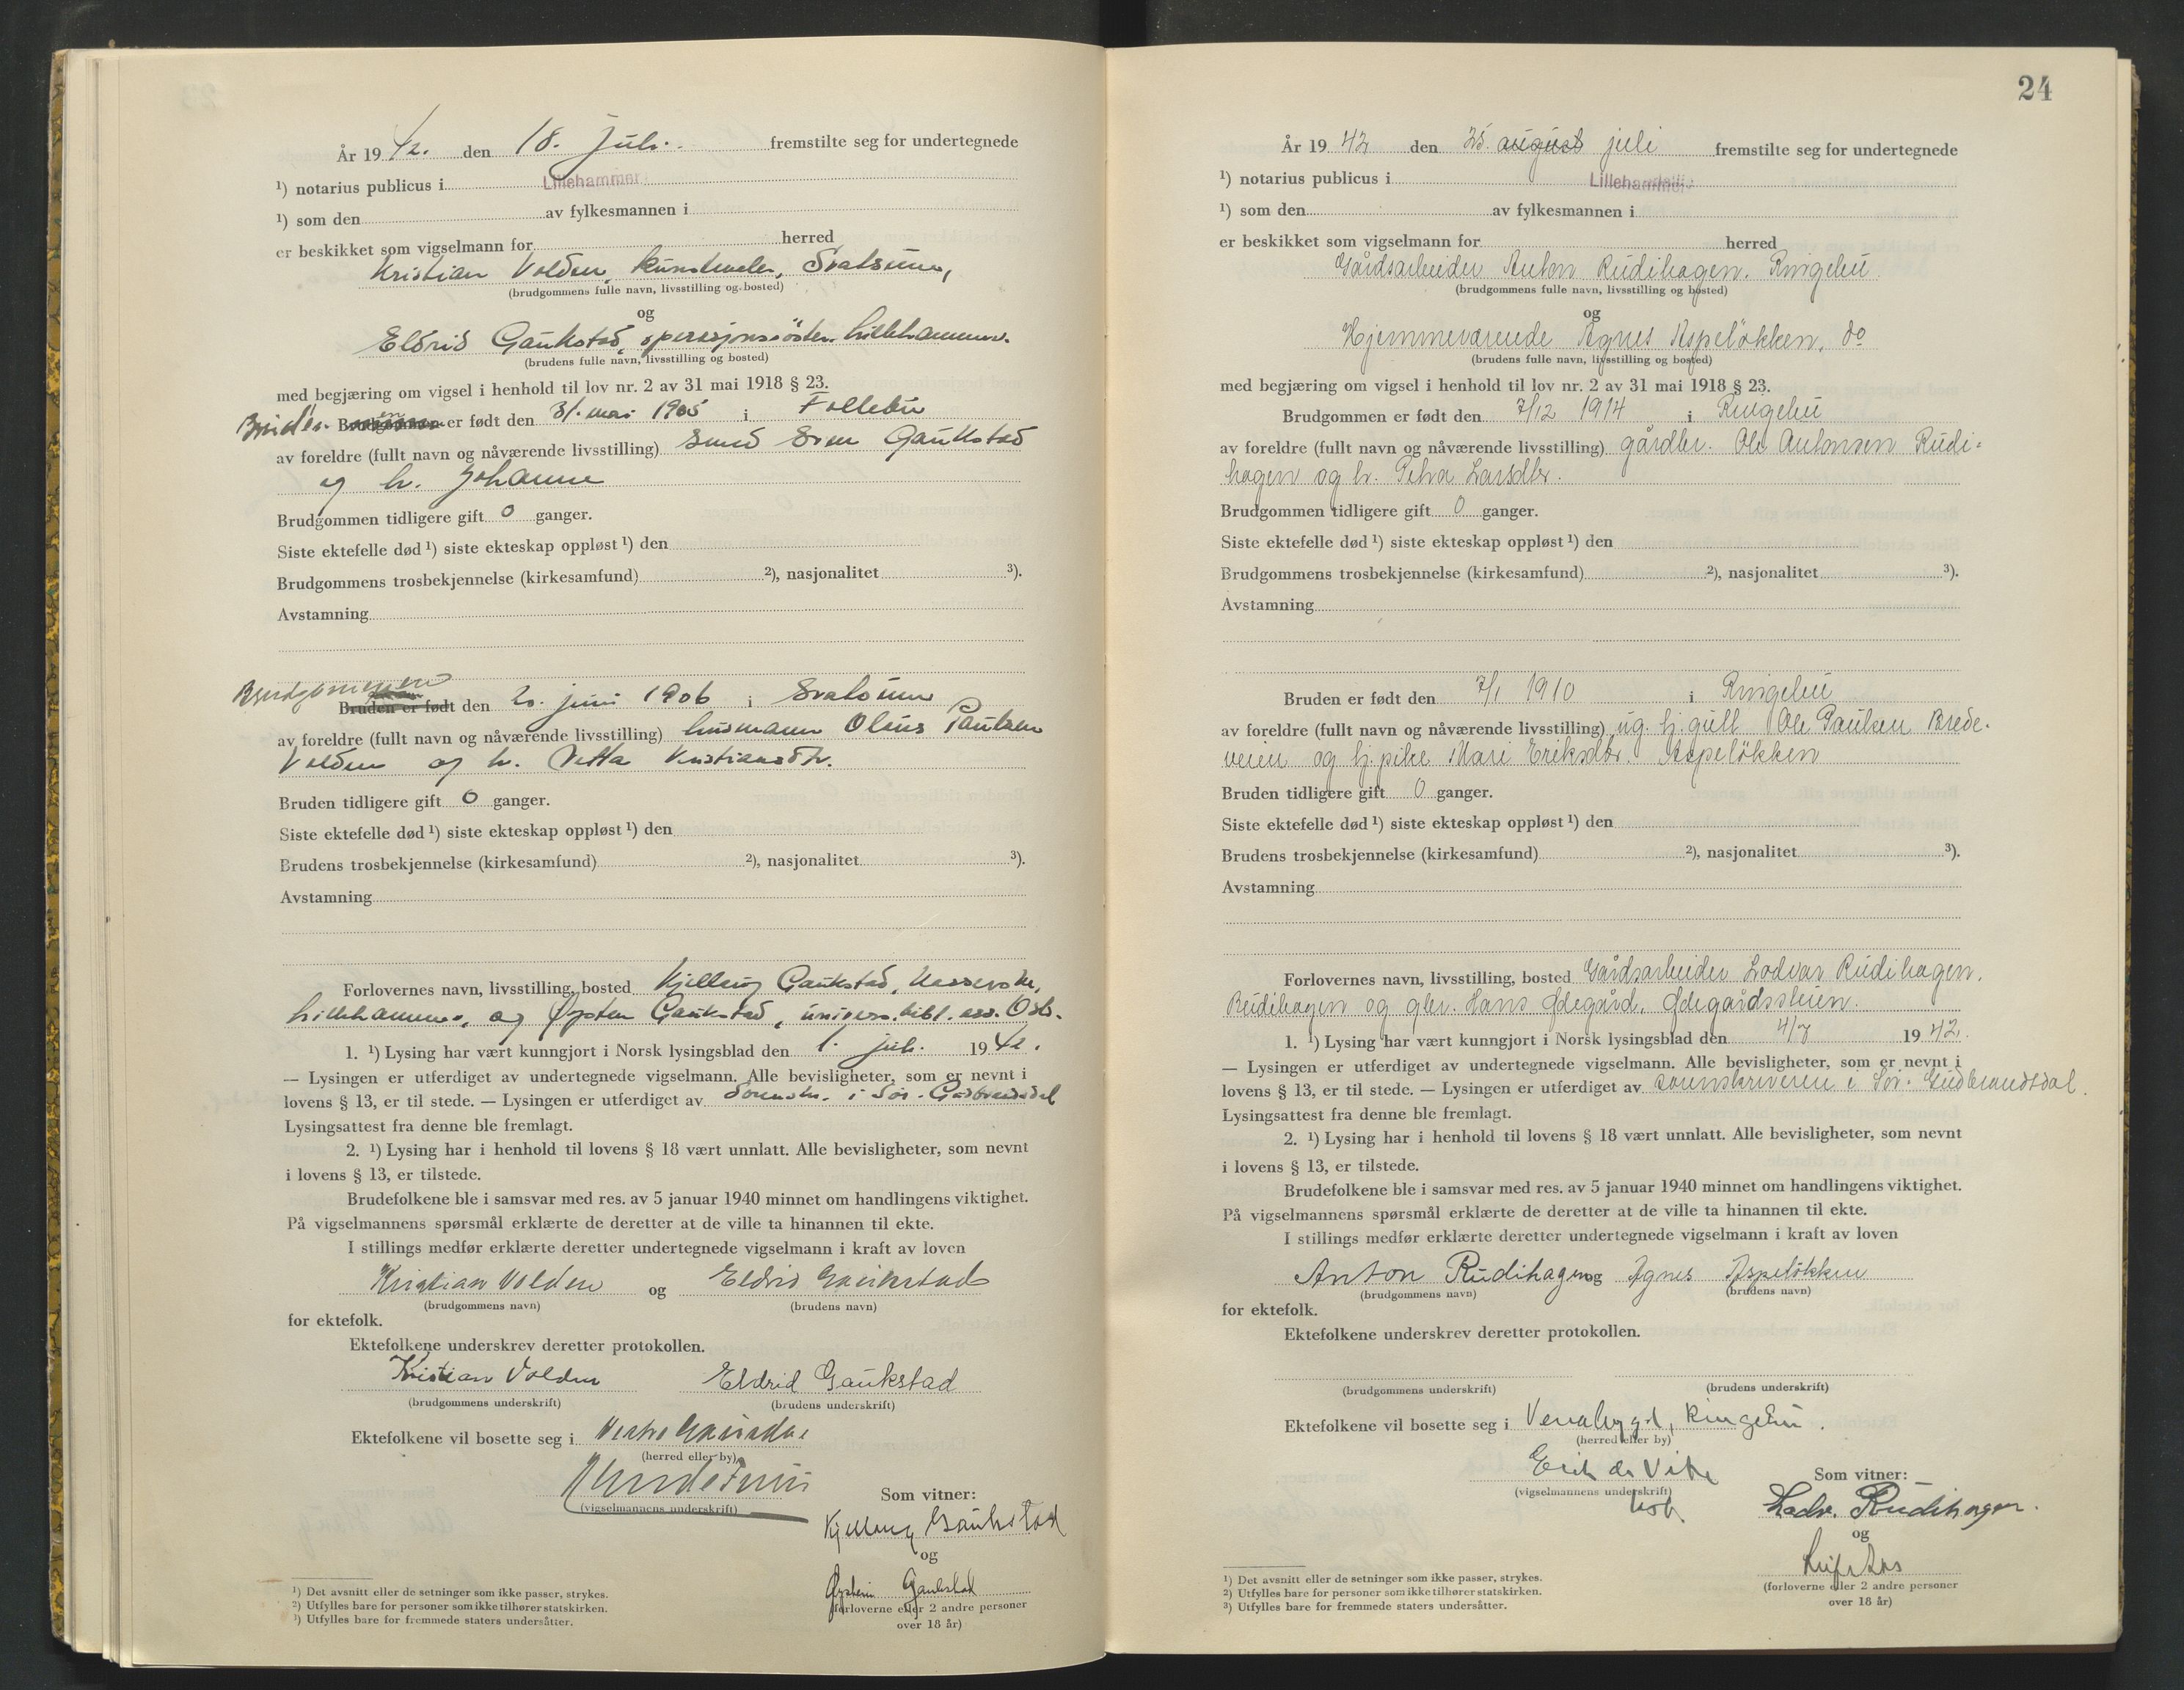 År 19 42. den 18. juli. fremstilte seg for undertegnede
¹) notarius publicus i Lillehammer
¹) som den av fylkesmannen i
er beskikket som vigselmann for herred
Kristian Volden, kunstmaler, Svatsum,
(brudgommens fulle navn, livsstilling og bosted)
og
Eldrid Gaukstad, operasjonssöster. Lillehammer.
(brudens fulle navn, livsstilling og bosted)
med begjæring om vigsel i henhold til lov nr. 2 av 31 mai 1918 § 23.
Bruden er født den 31. mai 1905 i Follebu
av foreldre (fullt navn og nåværende livsstilling) smed Sven Gaukstad
og h. Johanne
Brudgommen tidligere gift 0 ganger.
Siste ektefelle død ¹) siste ekteskap oppløst ¹) den
Brudgommens trosbekjennelse (kirkesamfund) ²), nasjonalitet ³).
Avstamning
Brudgommen
Bruden er født den 20. juni 1906 i Svatsum
av foreldre (fullt navn og nåværende livsstilling) husmann Olaus Paulsen
Volden og h. Netta Kristiansdtr.
Bruden tidligere gift 0 ganger.
Siste ektefelle død ¹) siste ekteskap oppløst ¹) den
Brudens trosbekjennelse (kirkesamfund) ²), nasjonalitet ³).
Avstamning
Forlovernes navn, livsstilling, bosted Kjellaug Gaukstad,
Lillehammer, og Øystein Gaukstad, univers. bibl. ass. Oslo.
1. ¹) Lysing har vært kunngjort i Norsk lysingsblad den 1. juli. 19 42.
— Lysingen er utferdiget av undertegnede vigselmann. Alle bevisligheter, som er nevnt i
lovens § 13, er til stede. — Lysingen er utferdiget av Sorenskr. i Sør-Gudbrandsdal
Lysingsattest fra denne ble fremlagt.
2. ¹) Lysing har i henhold til lovens § 18 vært unnlatt. Alle bevisligheter, som nevnt
i lovens § 13, er tilstede.
Brudefolkene ble i samsvar med res. av 5 januar 1940 minnet om handlingens viktighet.
På vigselmannens spørsmål erklærte de deretter at de ville ta hinannen til ekte.
I stillings medfør erklærte deretter undertegnede vigselmann i kraft av loven
Kristian Volden og Eldrid Gaukstad
(brudgommens navn) (brudens navn)
for ektefolk.
Ektefolkene underskrev deretter protokollen.
Kristian Volden Eldrid Gaukstad
(brudgommens underskrift) (brudens underskrift)
Ektefolkene vil bosette seg i Vestre Gausdal
(herred eller by)
(vigselmannens underskrift)
Som vitner:
Kjellaug Gaukstad
og
Øystein Gaukstad
(forloverne eller 2 andre personer
over 18 år)
¹) Det avsnitt eller de setninger som ikke passer, strykes.
²) Utfylles bare for personer som ikke tilhører statskirken.
³) Utfylles bare for fremmede staters undersåtter.
24
År 19 42 den 25. august juli fremstilte seg for undertegnede
¹) notarius publicus i Lillehammer
¹) som den av fylkesmannen i
er beskikket som vigselmann for herred
Gårdsarbeider Anton Rudihagen, Ringebu
(brudgommens fulle navn, livsstilling og bosted)
og
Hjemmeværende Agnes Aspelökken, do
(brudens fulle navn, livsstilling og bosted)
med begjæring om vigsel i henhold til lov nr. 2 av 31 mai 1918 § 23.
Brudgommen er født den 7/12 1914 i Ringebu
av foreldre (fullt navn og nåværende livsstilling) gårdbr. Ole Antonsen Rudi-
hagen og h. Petra Larsdtr.
Brudgommen tidligere gift 0 ganger.
Siste ektefelle død ¹) siste ekteskap oppløst ¹) den
Brudgommens trosbekjennelse (kirkesamfund) ²), nasjonalitet ³).
Avstamning
Bruden er født den 7/1 1910 i Ringebu
av foreldre (fullt navn og nåværende livsstilling) ug. hj. gutt Ole Paulsen Brede-
veien og hj. pike Mari Eriksdtr. Aspelökken
Bruden tidligere gift 0 ganger.
Siste ektefelle død ¹) siste ekteskap oppløst ¹) den
Brudens trosbekjennelse (kirkesamfund) ²), nasjonalitet ³).
Avstamning
Forlovernes navn, livsstilling, bosted Gårdsarbeider Lodvar Rudihagen,
Rudihagen og gbr. Hans Ødegård, Ødegårdsstuen.
1. ¹) Lysing har vært kunngjort i Norsk lysingsblad den 4/7 19 42.
— Lysingen er utferdiget av undertegnede vigselmann. Alle bevisligheter, som er nevnt i
lovens § 13, er til stede. — Lysingen er utferdiget av sorenskriveren i Sør-Gudbrandsdal.
Lysingsattest fra denne ble fremlagt.
2. ¹) Lysing har i henhold til lovens § 18 vært unnlatt. Alle bevisligheter, som nevnt
i lovens § 13, er tilstede.
Brudefolkene ble i samsvar med res. av 5 januar 1940 minnet om handlingens viktighet.
På vigselmannens spørsmål erklærte de deretter at de ville ta hinannen til ekte.
I stillings medfør erklærte deretter undertegnede vigselmann i kraft av loven
Anton Rudihagen og Agnes Aspelökken
(brudgommens navn) (brudens navn)
for ektefolk.
Ektefolkene underskrev deretter protokollen.
(brudgommens underskrift) (brudens underskrift)
Ektefolkene vil bosette seg i Venabygd, Ringebu.
(herred eller by)
Erik de Vibe
(vigselmannens underskrift)
Som vitner:
Lodv. Rudihagen.
og
Leif Aas
(forloverne eller 2 andre personer
over 18 år)
¹) Det avsnitt eller de setninger som ikke passer, strykes.
²) Utfylles bare for personer som ikke tilhører statskirken.
³) Utfylles bare for fremmede staters undersåtter.